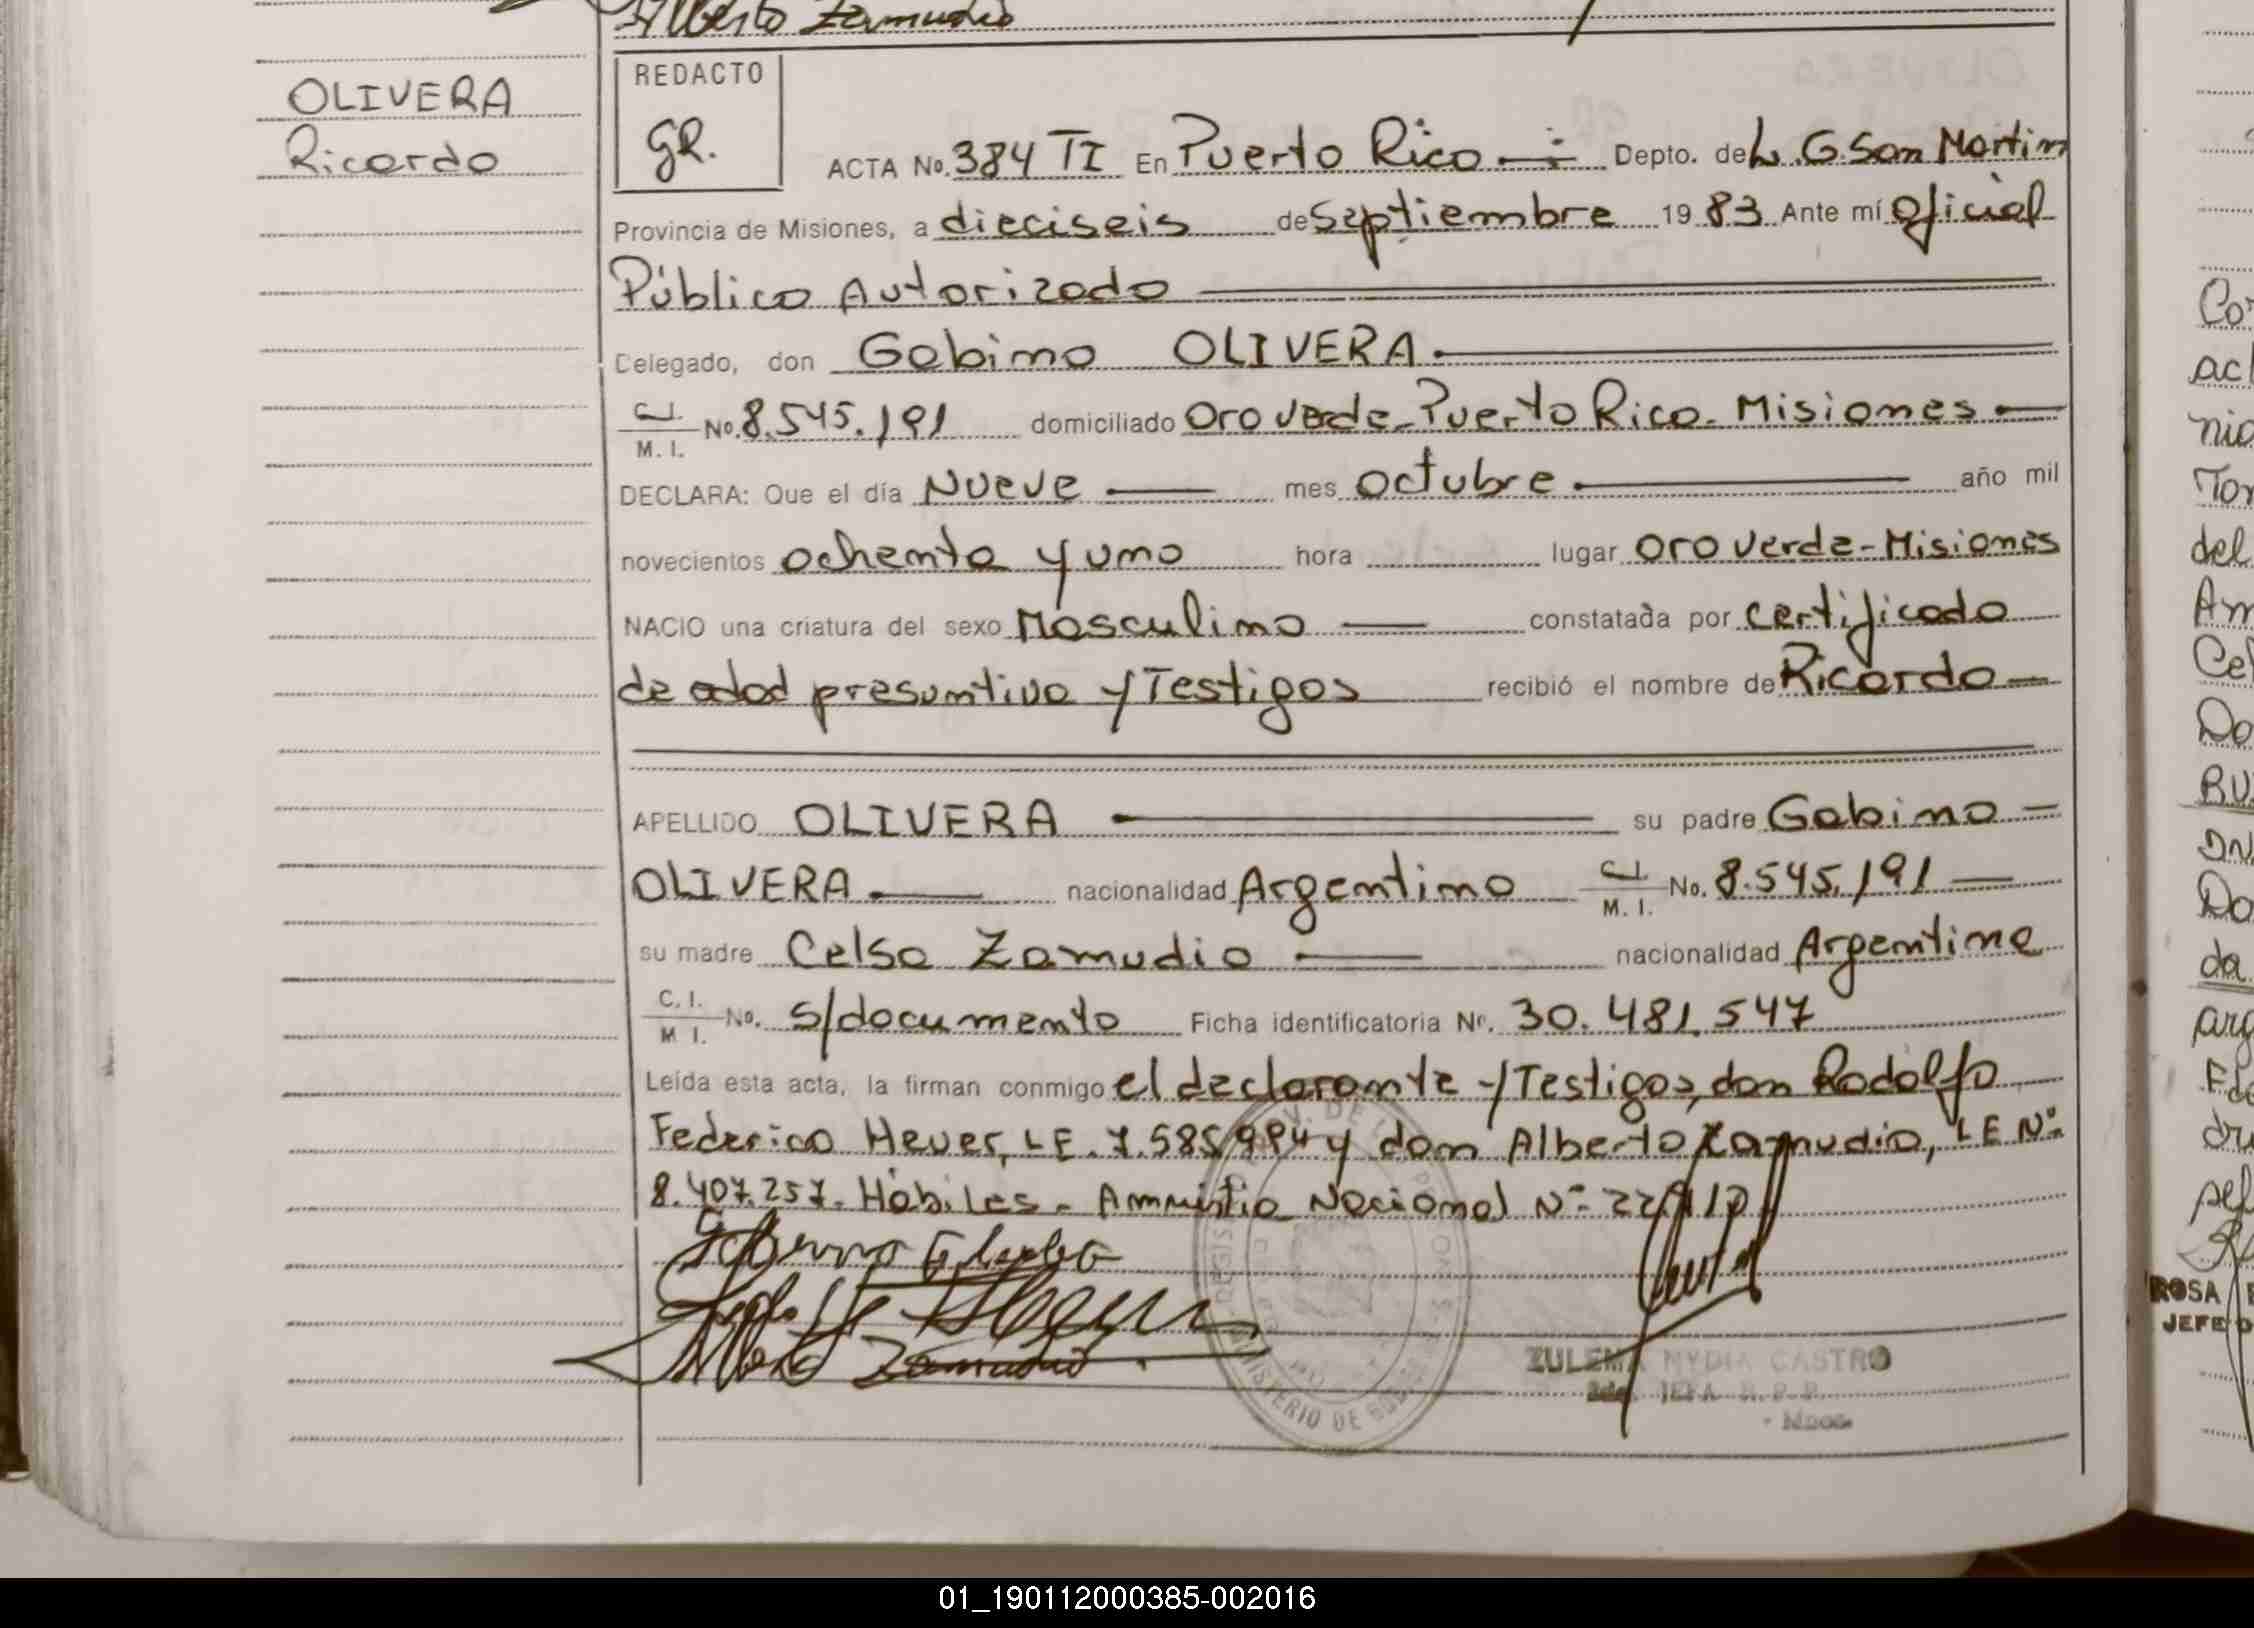 Alberto Zamudio
OLIVERA
Ricardo
REDACTO
GR.
ACTA No. 384 TI En Puerto Rico Depto. de L. G. San Martin
Provincia de Misiones, a dieciseis de Septiembre 1983 Ante mí Oficial
Público Autorizado
Celegado, don Gabino OLIVERA
C.I. M. I. No. 8.545.191 domiciliado Oro Verde-Puerto Rico-Misiones
DECLARA: Que el día Nueve mes Octubre año mil
novecientos ochenta y uno hora lugar Oro Verde-Misiones
NACIO una criatura del sexo Masculino constatada por certificado
de edad presuntiva y Testigos recibió el nombre de Ricardo
APELLIDO OLIVERA su padre Gabino
OLIVERA nacionalidad Argentino C.I. M. I. No. 8.545.191
su madre Celsa Zamudio nacionalidad Argentina
C. I. M I. No. s/documento Ficha identificatoria Nr. 30.481.547
Leída esta acta, la firman conmigo el declarante y Testigos, don Rodolfo
Federico Heuer, LE. 7.585.994 y don Alberto Zamudio, LE Nº
8.407.257. Hábiles - Amnistia Nacional Nº
Alberto Zamudio
ZULEMA NYDIA CASTRO
JEFA
MINISTERIO DE
Co
acl
nia
del
Am
Ce
Do
DN
Do
da
arg
ROSA
JEFE D
01_190112000385-002016